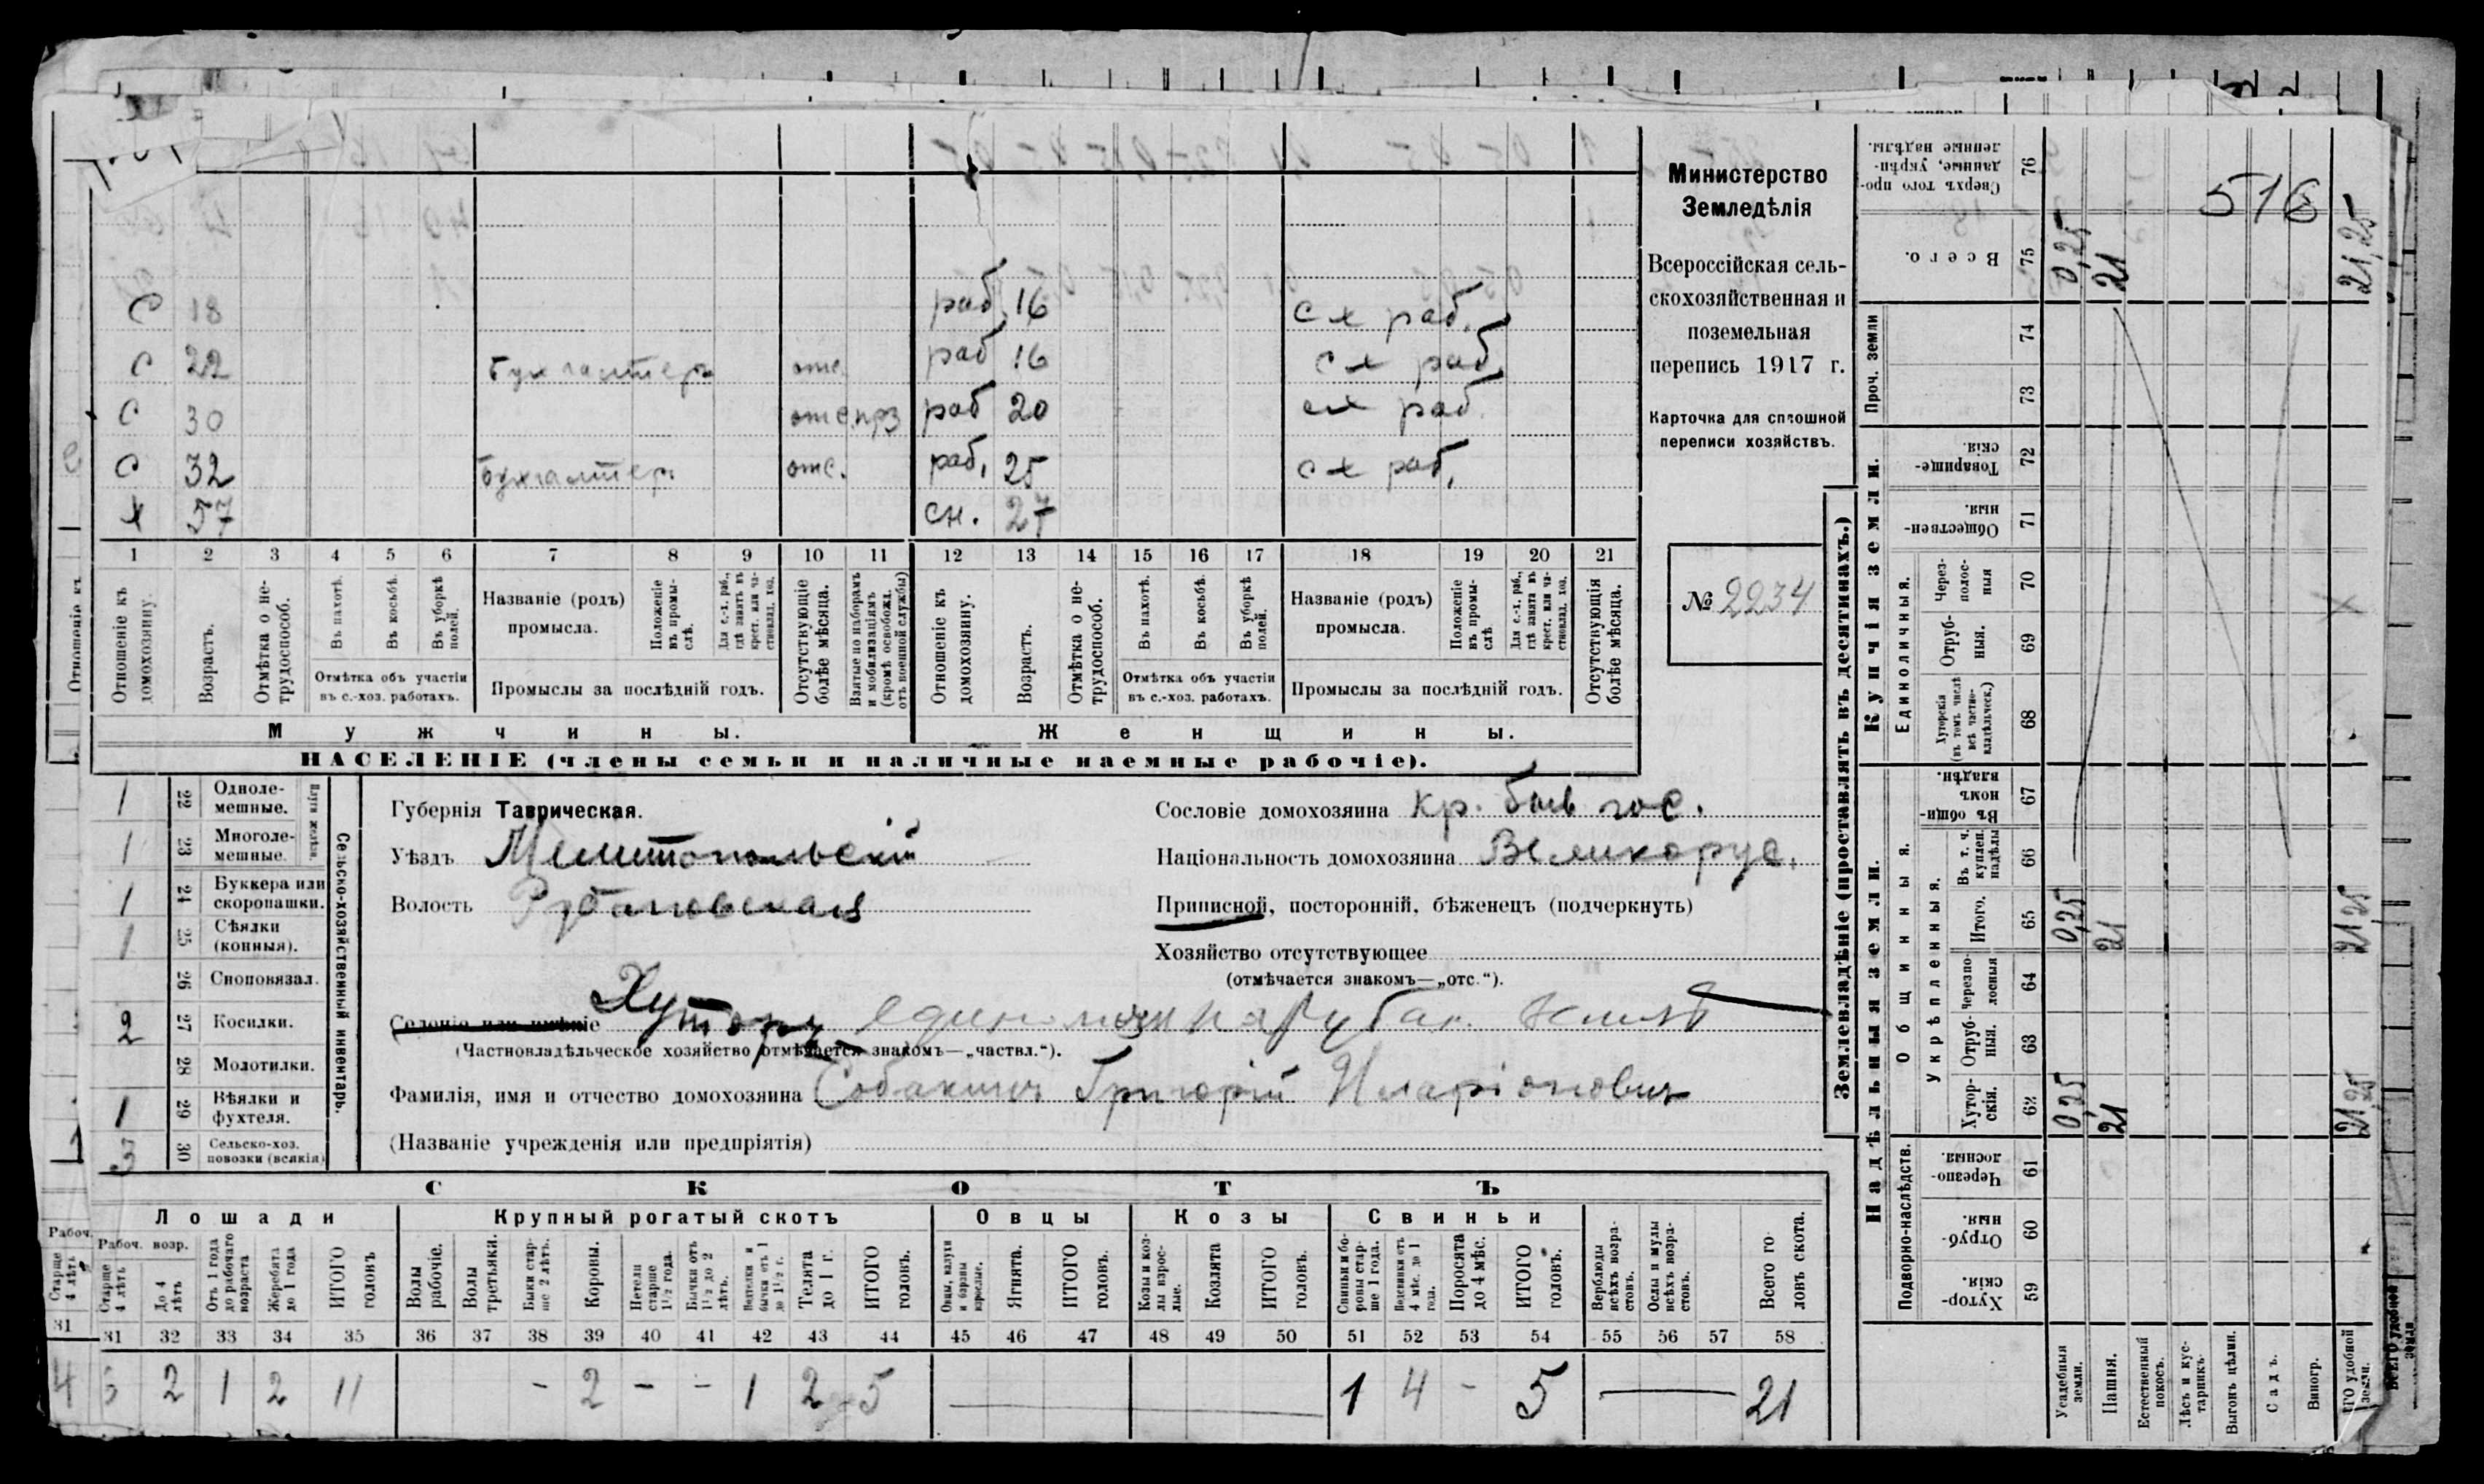 516
Министерство
Земледѣлія
Всероссійская сель-
скохозяйственная и
поземельная
перепись 1917 г.
Карточка для сплошной
переписи хозяйствъ.
№ 2234
С 18 раб. 16 с х раб.
С 22 Бухгалтеръ отс. раб 16 с х раб.
С 30 отс. прз раб 20 с х раб.
С 32 Бухгалтеръ отс. раб. 25 с х раб.
х 57 сн. 27
1 2 3 4 5 6 7 8 9 10 11 12 13 14 15 16 17 18 19 20 21
Отношеніе къ домохозяину.
Возрастъ.
Отмѣтка о не-трудоспособ.
Въ пахотѣ.
Въ косьбѣ.
Въ уборкѣ полей.
Отмѣтка объ участіи
въ с.-хоз. работахъ.
Названіе (родъ)
промысла.
Положеніе въ промы-слѣ.
Для с.-х. раб., гдѣ занятъ въ крест. или ча-стновлад. хоз.
Промыслы за послѣдній годъ.
Отсутствующіе болѣе мѣсяца.
Взятые по наборамъ и мобилизаціямъ (кромѣ освобожд. отъ военной службы)
Отношеніе къ домохозяину.
Возрастъ.
Отмѣтка о не-трудоспособ.
Въ пахотѣ.
Въ косьбѣ.
Въ уборкѣ полей.
Отмѣтка объ участіи
въ с.-хоз. работахъ.
Названіе (родъ)
промысла.
Положеніе въ промы-слѣ
Для с.-х. раб., гдѣ занятъ въ крест. или ча-стновлад. хоз.
Промыслы за послѣдній годъ.
Отсутствующія болѣе мѣсяца.
Мужчины. Женщины.
НАСЕЛЕНІЕ (члены семьи и наличные наемные рабочіе).
Сельско-хозяйственный инвентарь.
1 22 Одноле-мешные.
1 23 Многоле-мешные.
1 24 Буккера или скоропашки.
1 25 Сѣялки (конныя).
26 Сноповязал.
2 27 Косилки.
28 Молотилки.
1 29 Вѣялки и фухтеля.
3 30 Сельско-хоз. повозки (всякія)
Губернія Таврическая.
Уѣздъ Мелитопольскій
Волость Рубановская
Сословіе домохозяина кр. быв гос.
Національность домохозяина Великорус.
Приписной, посторонній, бѣженецъ (подчеркнуть)
Хозяйство отсутствующее
(отмѣчается знакомъ—„отс.“).
Селеніе или имѣніе Хуторъ
(Частновладѣльческое хозяйство отмѣчается знакомъ—„частвл.“).
Фамилія, имя и отчество домохозяина Собакинъ Григорій Иларіоновичъ
(Названіе учрежденія или предпріятія)
СКОТЪ
Лошади Крупный рогатый скотъ Овцы Козы Свиньи
Рабоч. возр.
Старше 4 лѣтъ
До 4 лѣтъ
Отъ 1 года до рабочаго возраста
Жеребята до 1 года
ИТОГО головъ
Волы рабочіе.
Волы третьяки.
Быки стар-ше 2 лѣтъ.
Коровы.
Нетели старше 1½ года.
Бычки отъ 1½ до 2 лѣтъ.
Телята до 1 г.
ИТОГО головъ.
Ягнята.
ИТОГО головъ.
Козы и коз-лы взрос-лые.
Козлята
ИТОГО головъ.
Свиньи и бо-ровы стар-ше 1 года.
Поросята до 4 мѣс.
ИТОГО головъ.
Верблюды всѣхъ возра-стовъ.
Ослы и мулы всѣхъ возра-стовъ.
Всего го-ловъ скота.
31 32 33 34 35 36 37 38 39 40 41 42 43 44 45 46 47 48 49 50 51 52 53 54 55 56 57 58
4 2 1 2 11 - 2 - - 1 2 5 1 4 - 5 21
Землевладѣніе (проставлять въ десятинахъ.)
Надѣльныя земли. Купчія земли.
Подворно-наслѣдств.
Общинныя.
Укрѣпленныя.
Единоличныя.
Проч. земли
76 Сверхъ того про-данные, укрѣп-ленные надѣлы.
75 Всего. 0,25 21 21,25
74
73
72 Товарище-скія.
71 Обществен-ныя.
70 Через-полос-ныя
69 Отруб-ныя.
68 Хуторскія (въ томъ числѣ всѣ частно-владѣльческ.)
67 Въ общи-номъ владѣн.
66 Въ т. ч. куплен. надѣлы
65 Итого. 0,25 21 21,25
64 Черезпо-лосныя
63 Отруб-ныя.
62 Хутор-скія. 0,25 21 21,25
61 Черезпо-лосныя.
60 Отруб-ныя.
59 Хутор-скія.
Усадебныя земли.
Пашня.
Естественный покосъ.
Лѣсъ и кус-тарникъ
Выгонъ цѣлин.
Садъ.
Виногр.